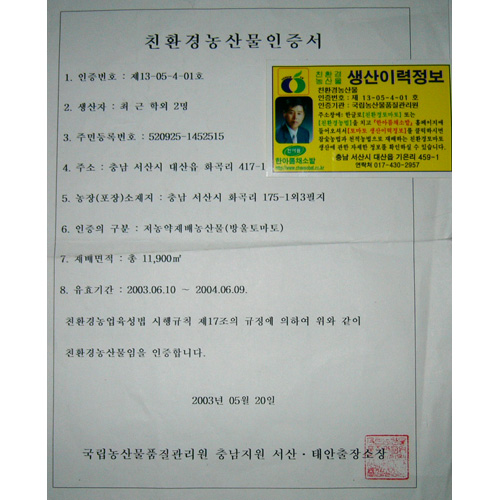 친환경농산물인증서
1. 인증번호 : 제13-05-4-01호
2. 생산자 : 최 근 학외 2명
3. 주민등록번호 : 520925-1452515
4. 주소 : 충남 서산시 대산읍 화곡리 417-1
5. 농장(포장)소재지 : 충남 서산시 화곡리 175-1외3필지
6. 인증의 구분 : 저농약재배농산물(방울토마토)
7. 재배면적 : 총 11,900㎡
8. 유효기간 : 2003.06.10 ~ 2004.06.09.
친환경농업육성법 시행규칙 제17조의 규정에 의하여 위와 같이
친환경농산물임을 인증합니다.
2003년 05월 20일
국립농산물품질관리원 충남지원 서산·태안출장소장
친환경
농산물
생산이력정보
친환경농산물
인증번호 : 제 13-05-4-01 호
인증기관 : 국립농산물품질관리원
주소창에: 한글로[친환경토마토] 또는
[친환경농법]을 치고 「한아름채소밭」홈페이지에
들어오셔서[토마토 생산이력정보]를 클릭하시면
생산에 관한 자세한 정보를 확인하실 수 있습니다.
한아름채소밭
충남 서산시 대산읍 기은리 459-1
연락처 017-430-2957